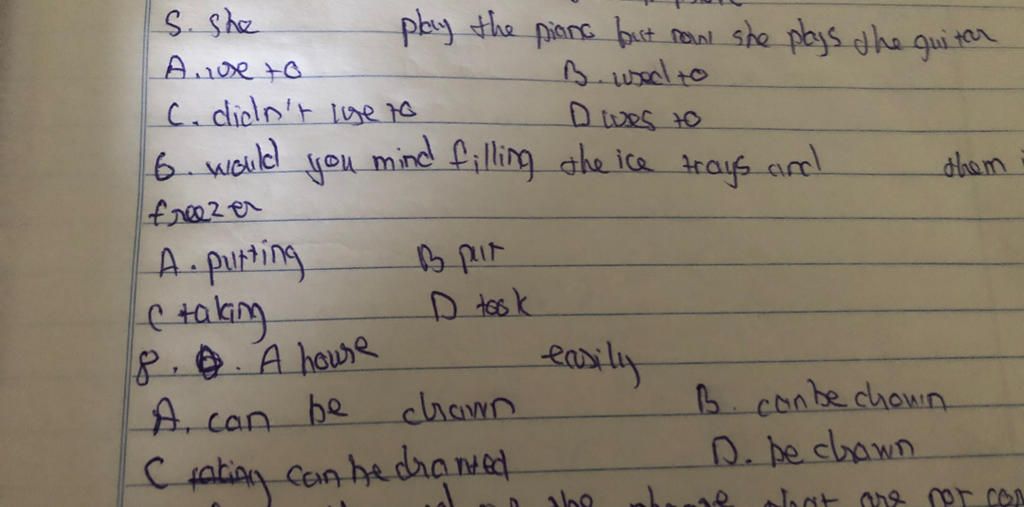 5. she play the piano but now she plays the guitar
A. use to B. used to
C. didn't use to D uses to
6. would you mind filling the ice trays and them
freezer
A. putting B put
C taking D took
8. A house easily
A. can be drawn B. can be
C can be D. be drawn
the that are not